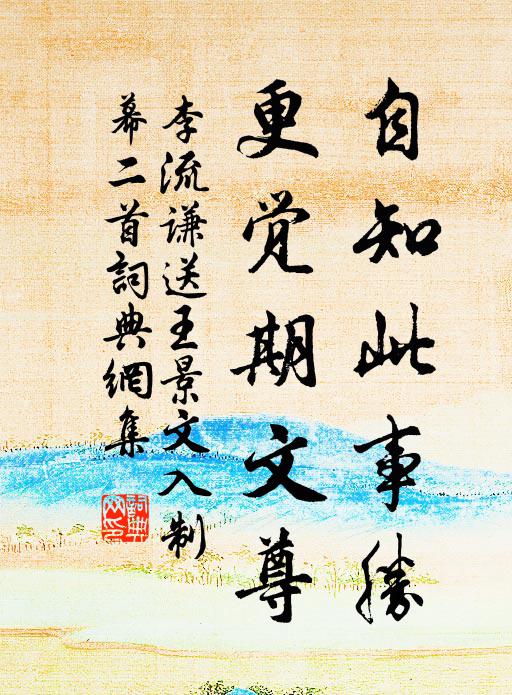 自知此事勝
更觉期文尊
李流谦送王景文入制
幕二首詞典網集
詞典